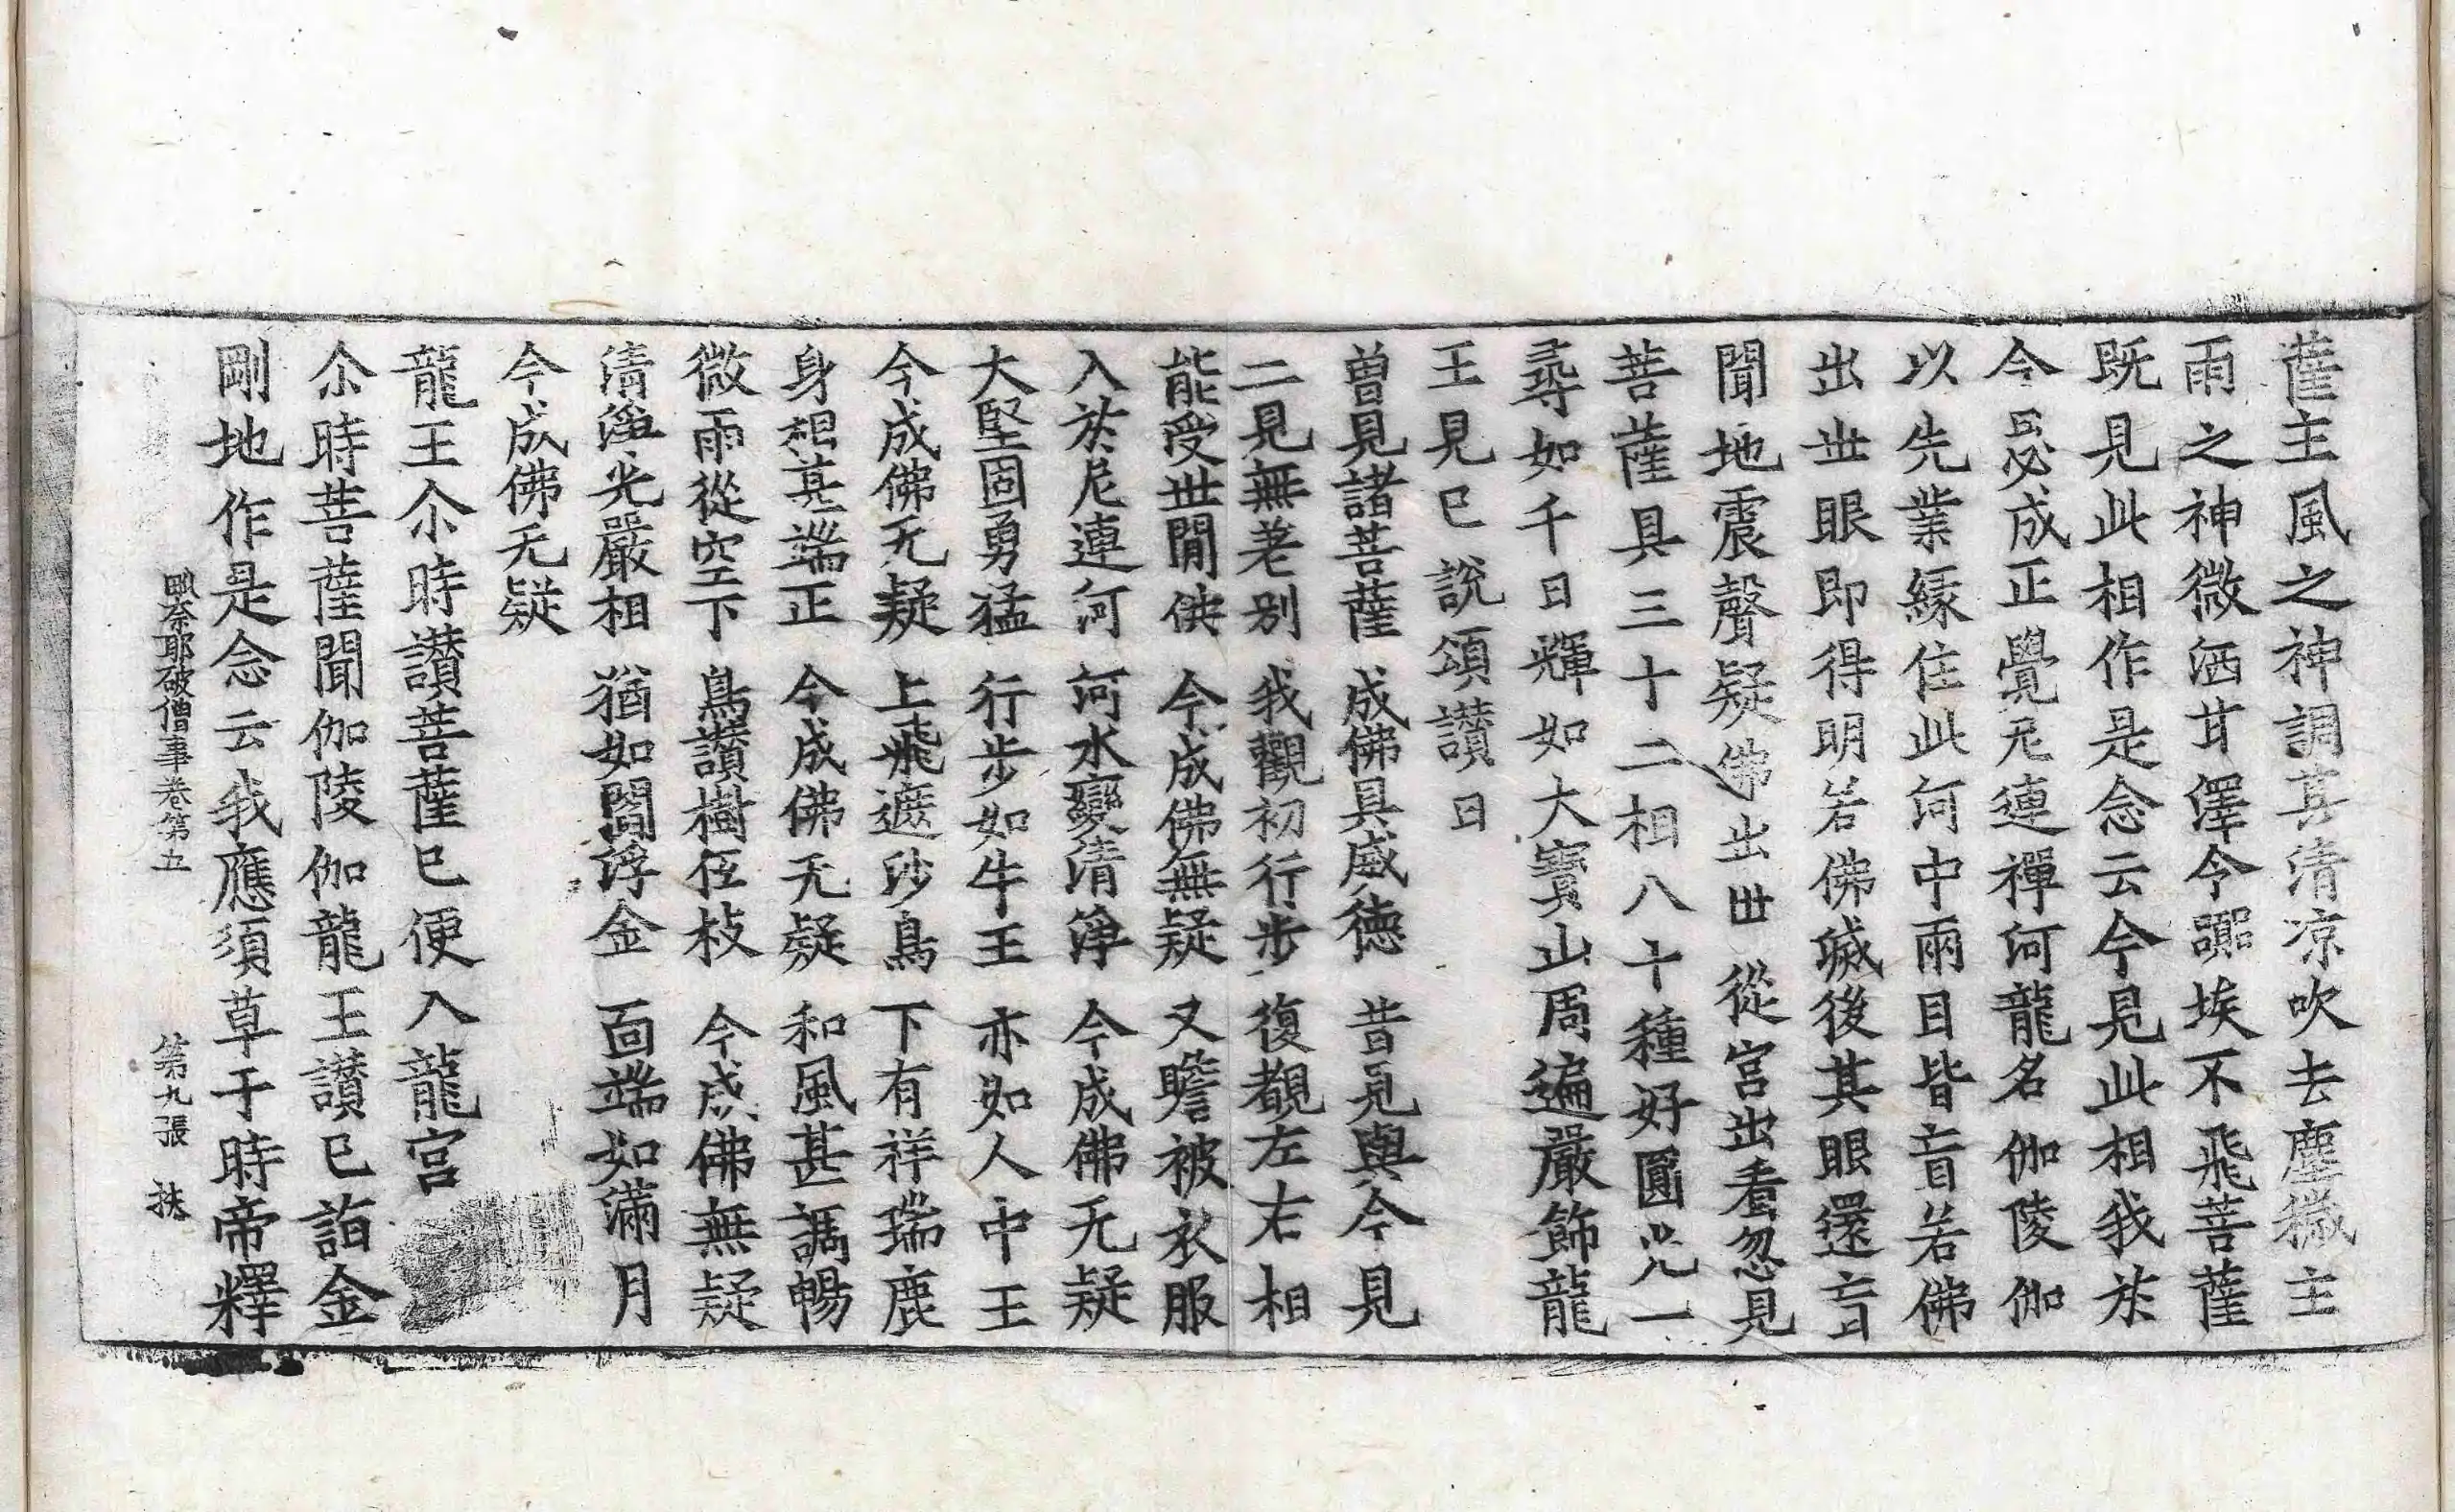 薩主風之神調其清凉吹去塵穢主
雨之神微洒甘澤令囂埃不飛菩薩
既見此相作是念云今見此相我於
今曰必成正覺尼連禪河龍名伽陵伽
以先業緣住此河中兩目皆盲若佛
出世眼即得明若佛滅後其眼還盲
聞地震聲疑佛出世從宮出看忽見
菩薩具三十二相八十種好圓光一
尋如千日輝如大寶山周遍嚴飾龍
王見已說頌讚曰
曾見諸菩薩　成佛具威德　昔見與今見
二見無差別　我觀初行步　復覩左右相
能受世閒供　今成佛無疑　又瞻被衣服
入於尼連河　河水變清淨　今成佛无疑
大堅固勇猛　行步如牛王　亦如人中王
今成佛无疑　上飛遮沙鳥　下有祥瑞鹿
身相甚端正　今成佛无疑　和風甚調暢
微雨從空下　鳥讚樹低枝　今成佛無疑
清淨光嚴相　猶如閻浮金　面端如滿月
今成佛无疑
龍王尒時讚菩薩已便入龍宮
尒時菩薩聞伽陵伽龍王讚已詣金
剛地作是念云我應須草于時帝釋
毗奈耶破僧事卷第五　第九張　扶